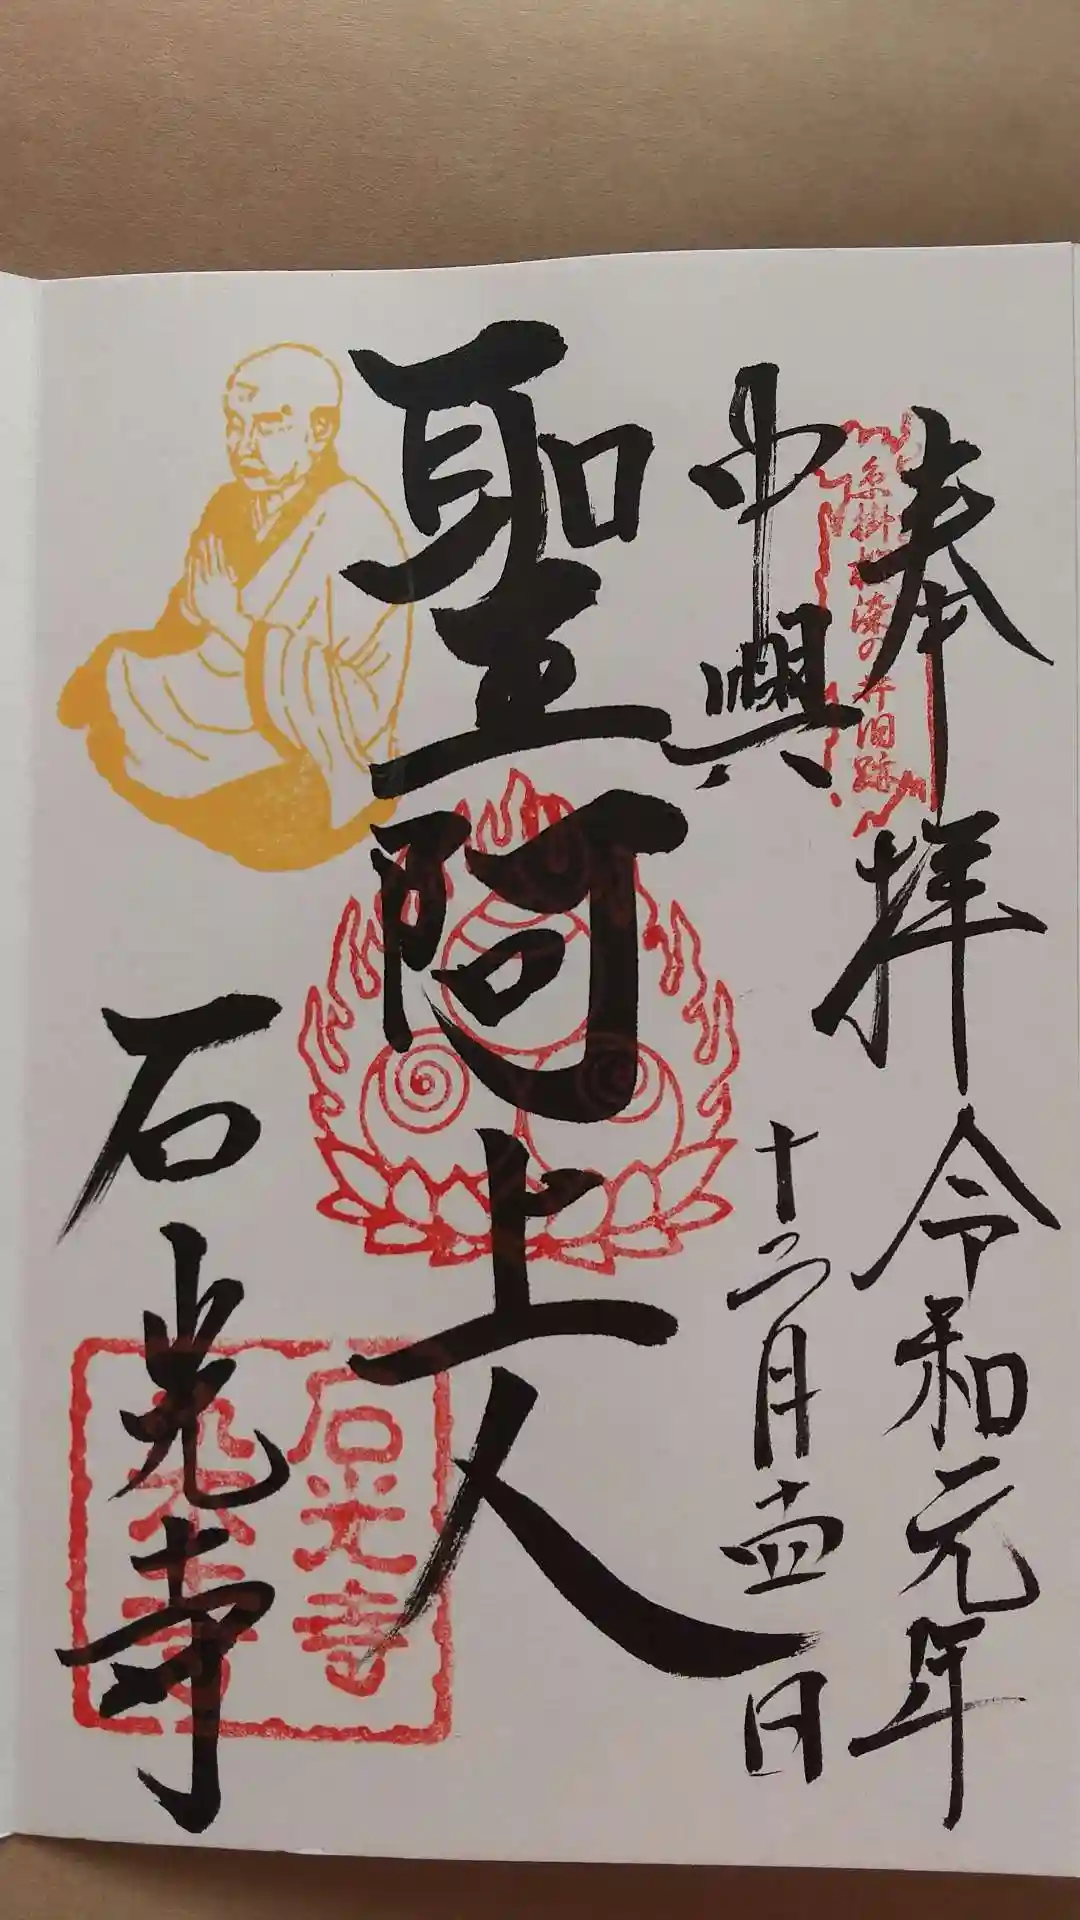 奉拝 令和元年
糸掛桜染の井旧跡
中興
十二月十四日
聖阿上人
石光寺
石光寺